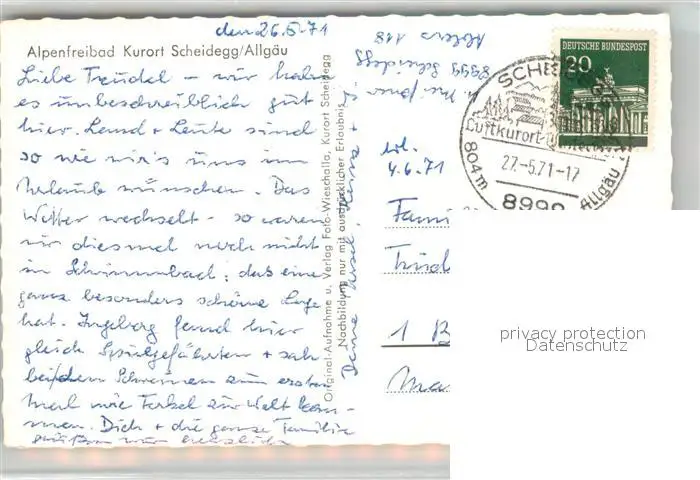 den 26.5.71
Alpenfreibad Kurort Scheidegg/Allgäu
Liebe Treudel - wir haben
es unbeschreiblich gut
hier. Land + Leute sind
so wie wir's uns im
Urlaub wünschen. Das
Wetter wechselt - so waren
wir diesmal noch nicht
im Schwimmbad; das eine
ganz besonders schöne Lage
hat. Ingeborg fand hier
gleich Spielgefährten + sah
bei den Schweinen zum ersten
Mal wie Ferkel zur Welt kom-
men. Dich + die ganze Familie
grüßen wir herzlich
Deine Ursel,
Original-Aufnahme u. Verlag Foto-Wieschalla, Kurort Scheidegg
Nachbildung nur mit ausdrücklicher Erlaubnis
8999 Scheidegg
118
erl.
4.6.71
DEUTSCHE BUNDESPOST
20
SCHEI
Luftkurort
27.-5.71-17
804m
8999
Allgäu
Fami
1 B
Ma
privacy protection
Datenschutz